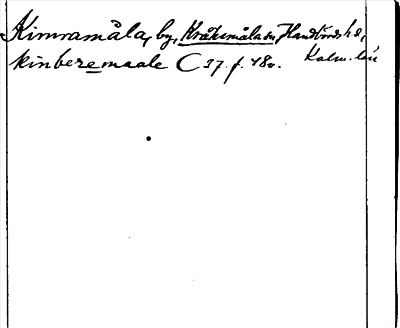 Kimramåla, by, Kråksmåla sn, Handbörds hd,
kinberemaale C 27. f. 48v. Kalm. län